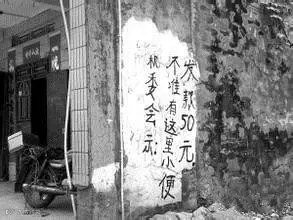 发款50元
不准有这里小便
委会示